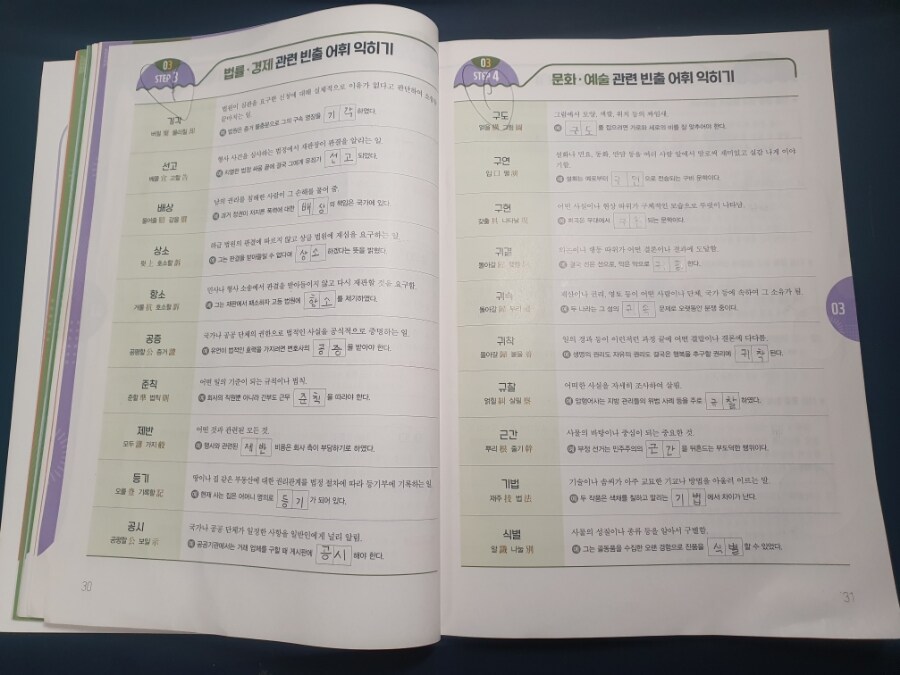 03
STEP 3
법률·경제 관련 빈출 어휘 익히기
기각
버릴 棄 물리칠 却
법원이 심판을 요구한 신청에 대해 실체적으로 이유가 없다고 판단하여
물리치는 일.
예 법원은 증거 불충분으로 그의 구속 영장을 기각하였다.
선고
베풀 宣 고할 告
형사 사건을 심사하는 법정에서 재판장이 판결을 알리는 일.
예 치열한 법정 싸움 끝에 결국 그에게 유죄가 선고되었다.
배상
물어줄 賠 갚을 償
남의 권리를 침해한 사람이 그 손해를 물어 줌.
예 과거 정권이 저지른 폭력에 대한 배상의 책임은 국가에 있다.
상소
윗 上 호소할 訴
하급 법원의 판결에 따르지 않고 상급 법원에 재심을 요구하는 일.
예 그는 판결을 받아들일 수 없다며 상소하겠다는 뜻을 밝혔다.
항소
겨룰 抗 호소할 訴
민사나 형사 소송에서 판결을 받아들이지 않고 다시 재판할 것을 요구함.
예 그는 재판에서 패소하자 고등 법원에 항소를 제기하였다.
공증
공평할 公 증거 證
국가나 공공 단체의 권한으로 법적인 사실을 공식적으로 증명하는 일.
예 유언이 법적인 효력을 가지려면 변호사의 공증을 받아야 한다.
준칙
준할 準 법칙 則
어떤 일의 기준이 되는 규칙이나 법칙.
예 회사의 직원뿐 아니라 간부도 근무 준칙을 따라야 한다.
제반
모두 諸 가지 般
어떤 것과 관련된 모든 것.
예 행사와 관련된 제반 비용은 회사 측이 부담하기로 하였다.
등기
오를 登 기록할 記
땅이나 집 같은 부동산에 대한 권리관계를 법정 절차에 따라 등기부에 기록하는 일.
예 현재 사는 집은 어머니 명의로 등기가 되어 있다.
공시
공평할 公 보일 示
국가나 공공 단체가 일정한 사항을 일반인에게 널리 알림.
예 공공기관에서는 거래 업체를 구할 때 게시판에 공시해야 한다.
30
03
STEP 4
문화·예술 관련 빈출 어휘 익히기
구도
얽을 構 그림 圖
그림에서 모양, 색깔, 위치 등의 짜임새.
예 구도를 잡으려면 가로와 세로의 비를 잘 맞추어야 한다.
구연
입 口 펼 演
설화나 민요, 동화, 만담 등을 여러 사람 앞에서 말로써 재미있고 실감 나게 이야
기함.
예 설화는 예로부터 구연으로 전승되는 구비 문학이다.
구현
갖출 具 나타날 現
어떤 사실이나 현상 따위가 구체적인 모습으로 뚜렷이 나타남.
예 희곡은 무대에서 구현되는 문학이다.
귀결
돌아갈 歸
의논이나 행동 따위가 어떤 결론이나 결과에 도달함.
예 결국 선은 선으로, 악은 악으로 귀결된다.
귀속
돌아갈 歸
재산이나 권리, 영토 등이 어떤 사람이나 단체, 국가 등에 속하여 그 소유가 됨.
예 두 나라는 그 섬의 귀속 문제로 오랫동안 분쟁 중이다.
귀착
돌아갈 歸 붙을 着
일의 경과 등이 이런저런 과정 끝에 어떤 결말이나 결론에 다다름.
예 생명의 권리도 자유의 권리도 결국은 행복을 추구할 권리에 귀착된다.
규찰
얽힐 糾 살필 察
어떠한 사실을 자세히 조사하여 살핌.
예 암행어사는 지방 관리들의 위법 사례 등을 주로 규찰하였다.
근간
뿌리 根 줄기 幹
사물의 바탕이나 중심이 되는 중요한 것.
예 부정 선거는 민주주의의 근간을 뒤흔드는 부도덕한 행위이다.
기법
재주 技 법 法
기술이나 솜씨가 아주 교묘한 기교나 방법을 아울러 이르는 말.
예 두 작품은 색채를 칠하고 깔리는 기법에서 차이가 난다.
식별
알 識 나눌 別
사물의 성질이나 종류 등을 알아서 구별함.
예 그는 골동품을 수집한 오랜 경험으로 진품을 식별할 수 있었다.
03
31